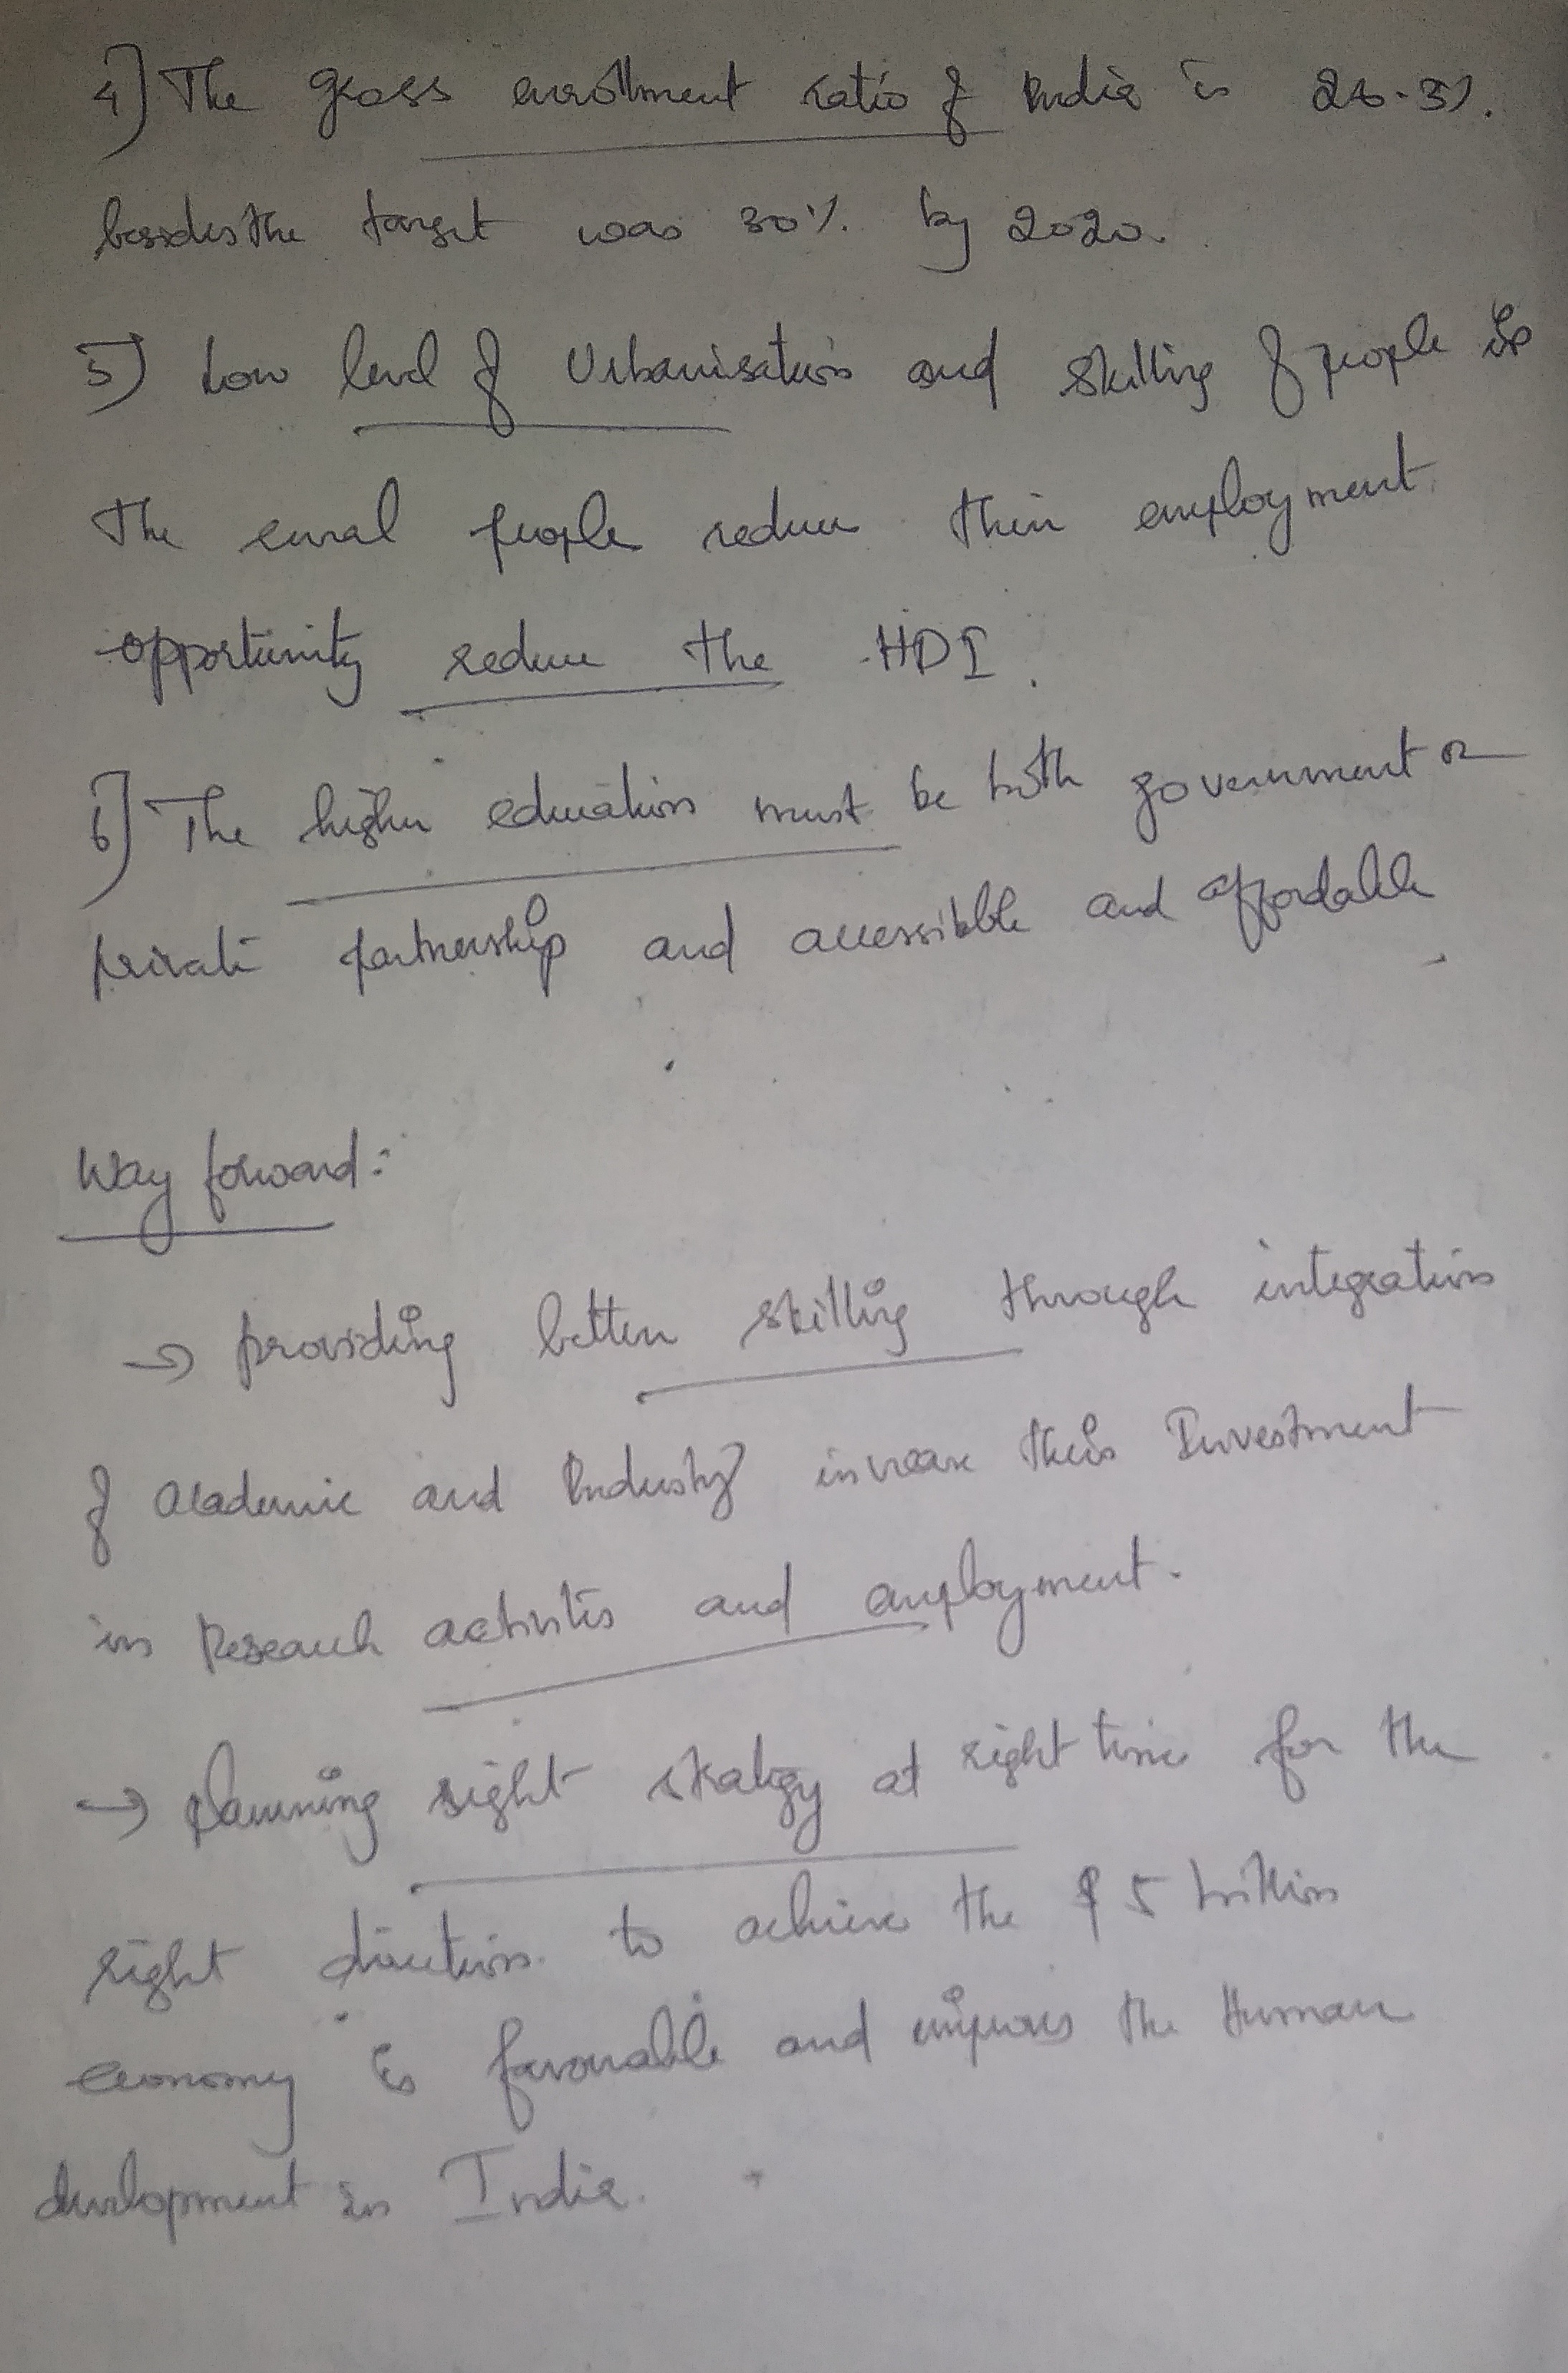 4) The gross enrollment ratio of India is 26.3%.
besides the target was 30%. by 2020.
5) Low level of Urbanisation and skilling of people in
the rural people reduce their employment
opportunity reduce the HDI.
6) The higher education must be both government or
private partnership and accessibble and affordable
Way forward:-
→ providing better skilling through integration
of academic and Industry increase this Investment
in Research activities and employment.
→ planning right strategy at right time for the
right direction. to achieve the $ 5 trillion
economy is favourable and improves the Human
development in India.